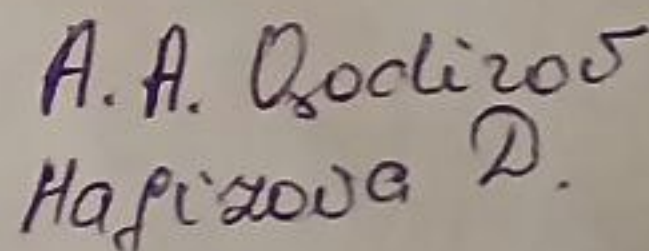 A. A. Qodirov
Hafizova D.